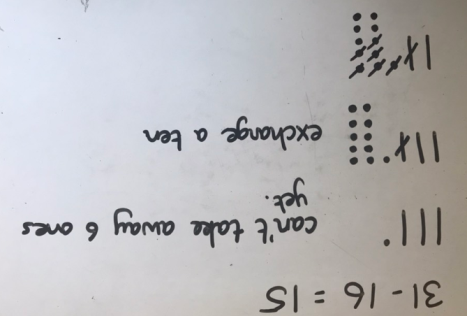 31 - 16 = 15
can't take away 6 ones
yet.
exchange a ten